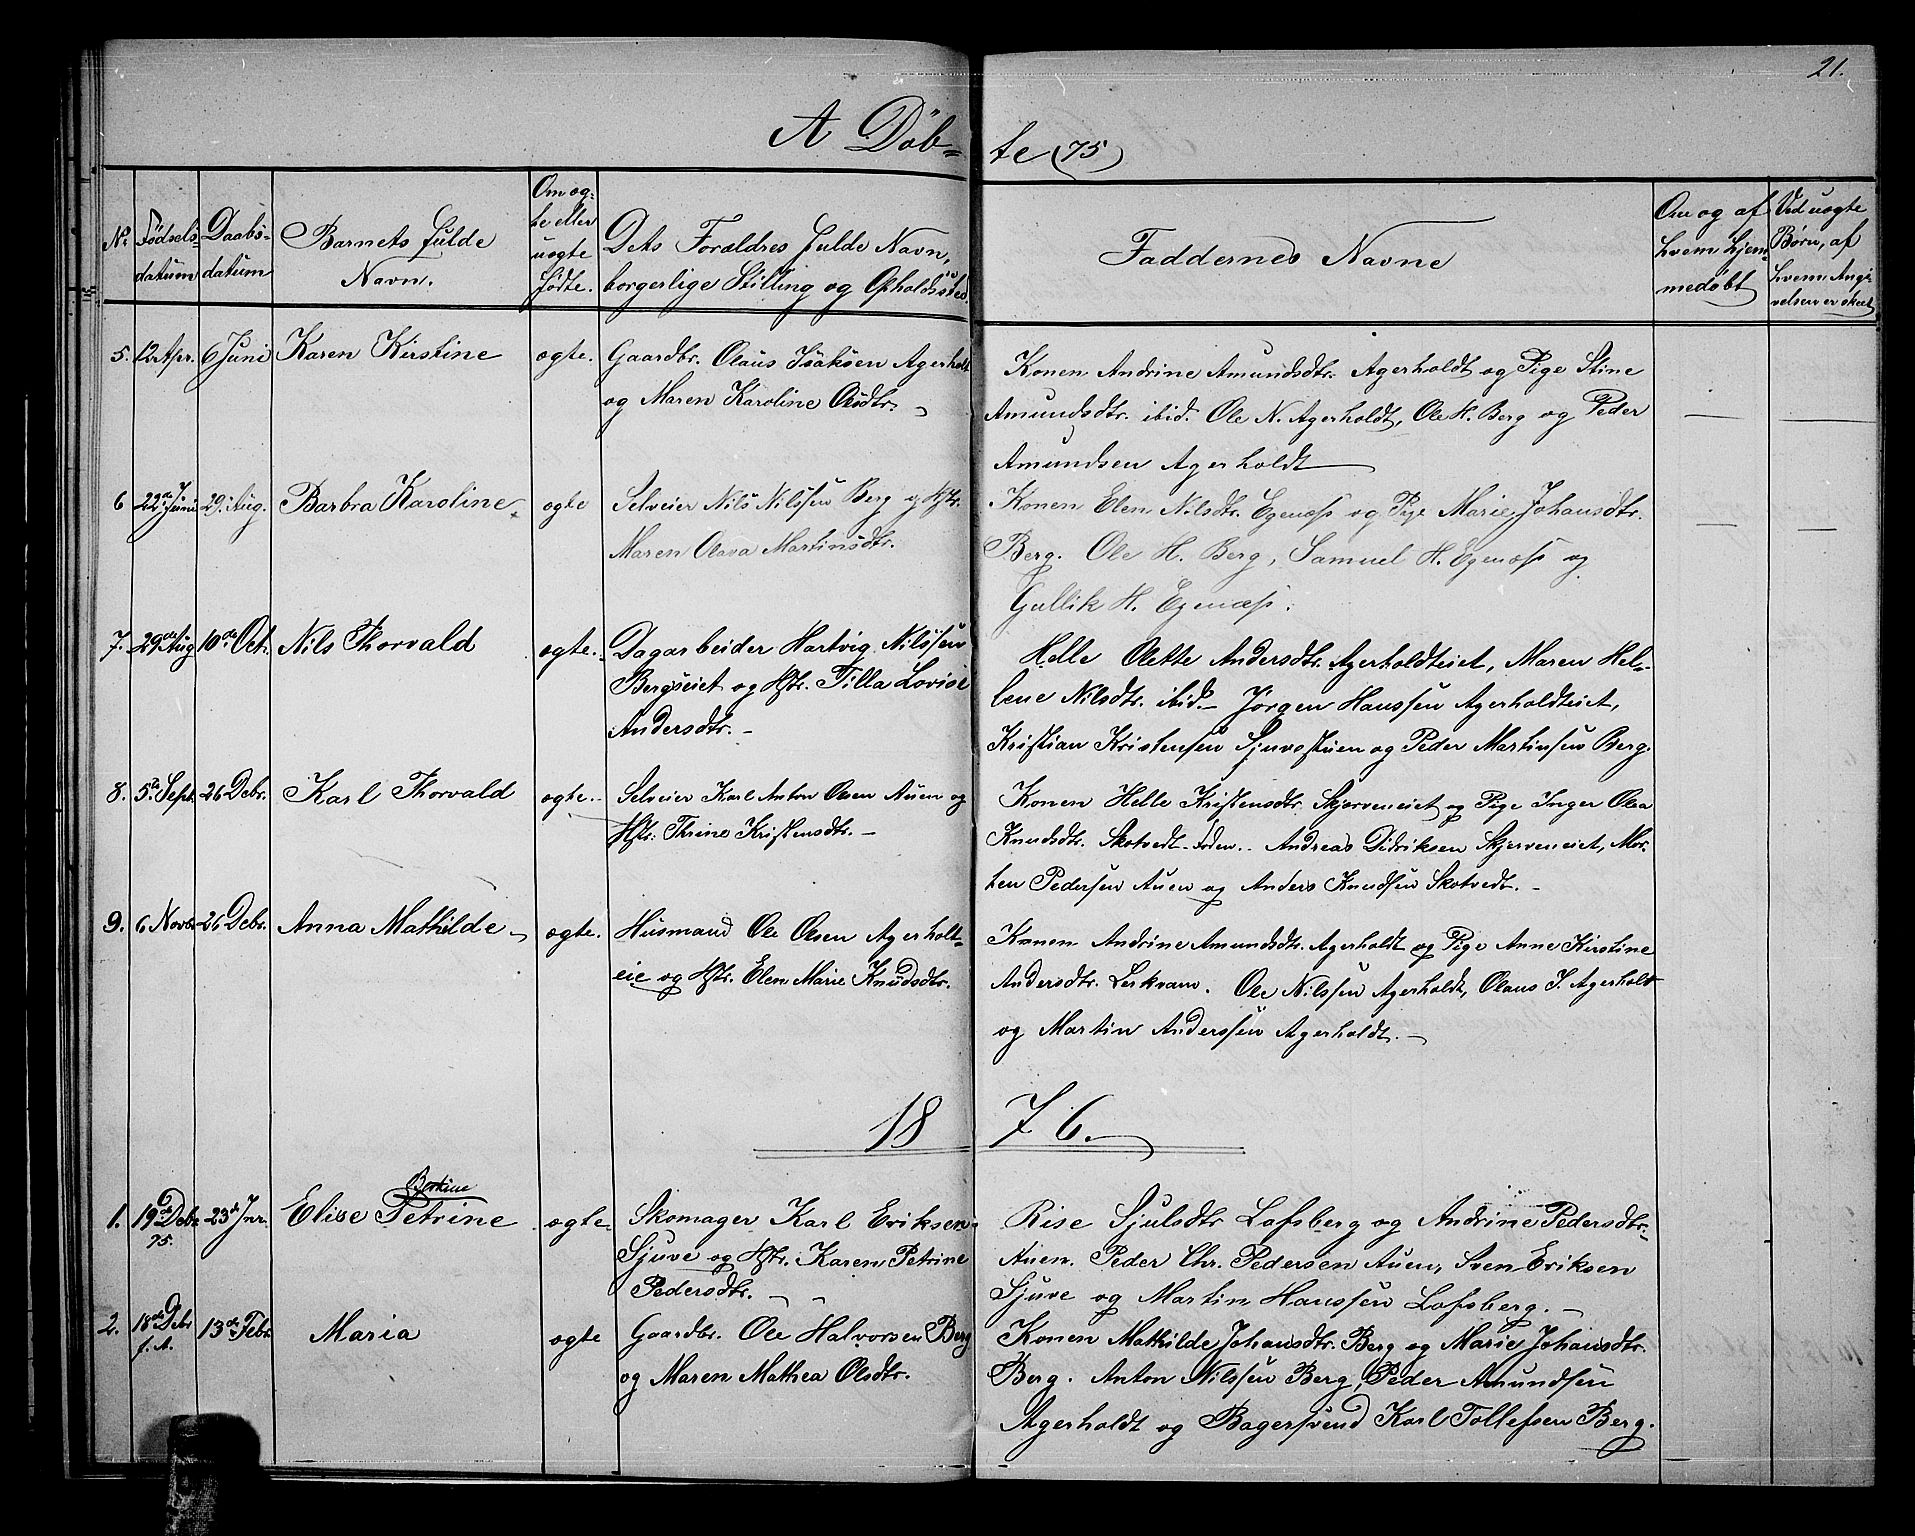 21.
A Döb= te (75)
No. Födsels- datum Daabs- datum Barnets fulde Navn. Om æg- te eller uægte födte. Dets Forældres fulde Navn, borgerlige Stilling og Opholdssted. Faddernes Navne Om og af hvem hjem- medöbt Ved uægte Börn, af hvem Angi- velsen er skeet
5. 12 Apr. 6 Juni Karen Kirstine ægte. Gaardbr. Olaus Isaksen Agerholt
og Maren Karoline Olsdtr.
Konen Andrine Amundsdtr. Agerholdt og Pige Stine
Amundsdtr. ibid. Ole N. Agerholdt, Ole H. Berg og Peder
Amundsen Agerholdt
6 22de Juni 29. Aug. Barbra Karoline ægte Selveier Nils Nilssen Berg og Hstr.
Maren Olava Martinsdtr.
Konen Elen Nilsdtr. Egenæss og Pige Marie Johansdtr.
Berg. Ole H. Berg, Samuel H. Egenæss og
Gullik H. Egenæss.
7. 29de Aug 10de Oct. Nils Thorvald ægte. Dagarbeider Hartvig Nilssen
Bergseiet og Hstr. Tilla Lovise
Andersdtr.
Helle Olette Andersdtr. Agerholdteiet, Maren Hel-
lene Nilsdtr. ibid. Jörgen Hanssen Agerholdteiet,
Kristian Kristensen Sjuvestuen og Peder Martinsen Berg.
8. 5te Sept. 26 Debr. Karl Thorvald ægte. Selveier Karl Anton Olsen Auen og
Hstr. Thrine Kristensdtr.
Konen Helle Kristensdtr. Skjerveneiet og Pige Inger Olea
Knudsdtr. Skotvedt. Andreas Didriksen Skjerveneiet, Mor-
ten Pedersen Auen og Anders Knudsen Skotvedt.
9. 6 Novbr 26 Debr. Anna Mathilde ægte. Husmand Ole Olsen Agerholt-
eie og Hstr. Elen Marie Knudsdtr.
Konen Andrine Amundsdtr. Agerholdt og Pige Anne Kirstine
Andersdtr. Lerkvam. Ole Nilssen Agerholdt, Olaus I. Agerholt
og Martin Anderssen Agerholdt.
18 76.
1. 19de Debr 75. 23de Jnr. Elise Bertine Petrine ægte Skomager Karl Eriksen
Sjuve og Hstr. Karen Petrine
Pedersdtr.
Rise Sjulsdtr Lofsberg og Andrine Pedersdtr.
Auen. Peder Chr. Pedersen Auen, Sven Eriksen
Sjuve og Martin Hanssen Lofsberg.
2. 18de Debr f. A. 13de Febr. Maria ægte Gaardbr. Ole Halvorsen Berg
og Maren Mathea Olsdtr.
Konen Mathilde Johansdtr. Berg og Marie Johansdtr.
Berg. Anton Nilssen Berg, Peder Amundsen
Agerholdt og Bagersvend Karl Tollefsen Berg.